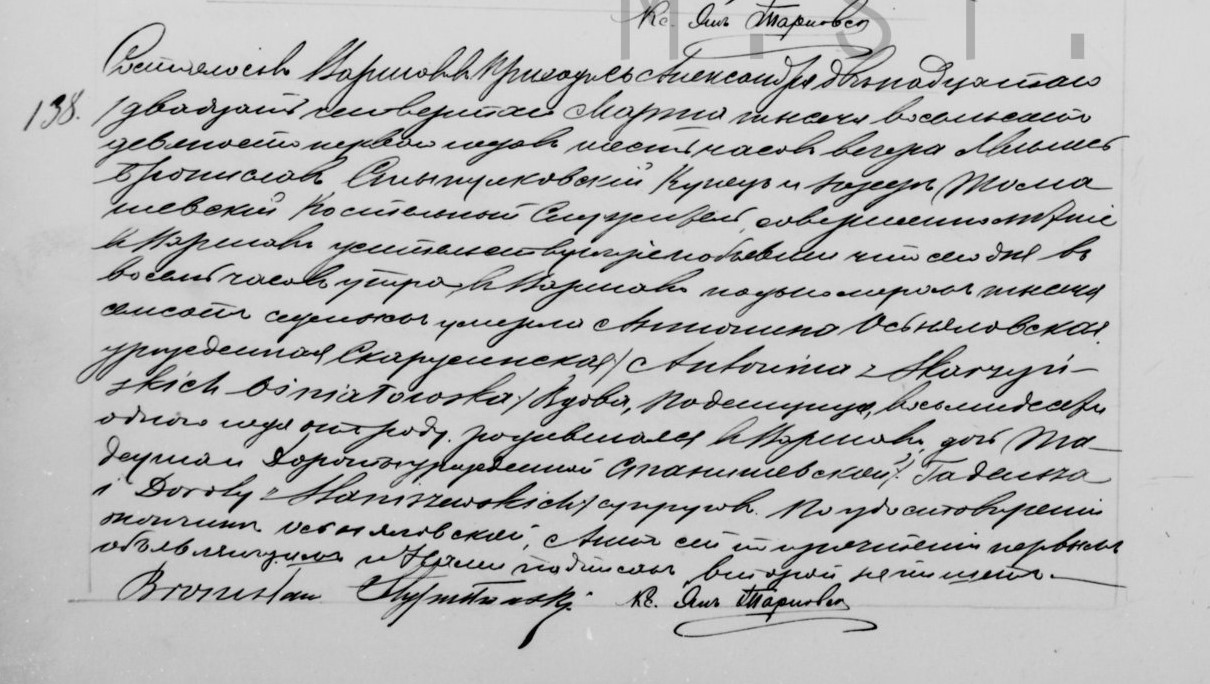 Кс. Янъ Тарновск
138.
Состоялось въ Варшавѣ въ приходѣ св Александра двѣнадцатаго
/двадцать четвертаго Марта тысяча восемьсотъ
девяносто перваго года въ шесть часовъ вечера Явились
Брониславъ Купецъ и Томашевскій
Костельный Служитель, совершеннолѣтніе
въ Варшавѣ жительствующіе и объявили что сего дня въ
восемь часовъ утра въ Варшавѣ подъ номеромъ тысяча
умерла Антонина Осьняловская
урожденная Скаржинская/ Antonina z Skarzyń-
skich Ośniałowska/ Вдова, восьмидесяти
одного года отъ роду. родившаяся въ Варшавѣ, дочь Та-
деуша и Дороты урожденной Станишевской/ Tadeusza
i Doroty z Staniszewskich/ супруговъ. По удостовѣреніи
кончины Осьняловской, Актъ сей по прочтеніи первымъ
объявляющимъ и Нами подписанъ второй не пишетъ.
Bronisław Кс. Янъ Тарновск